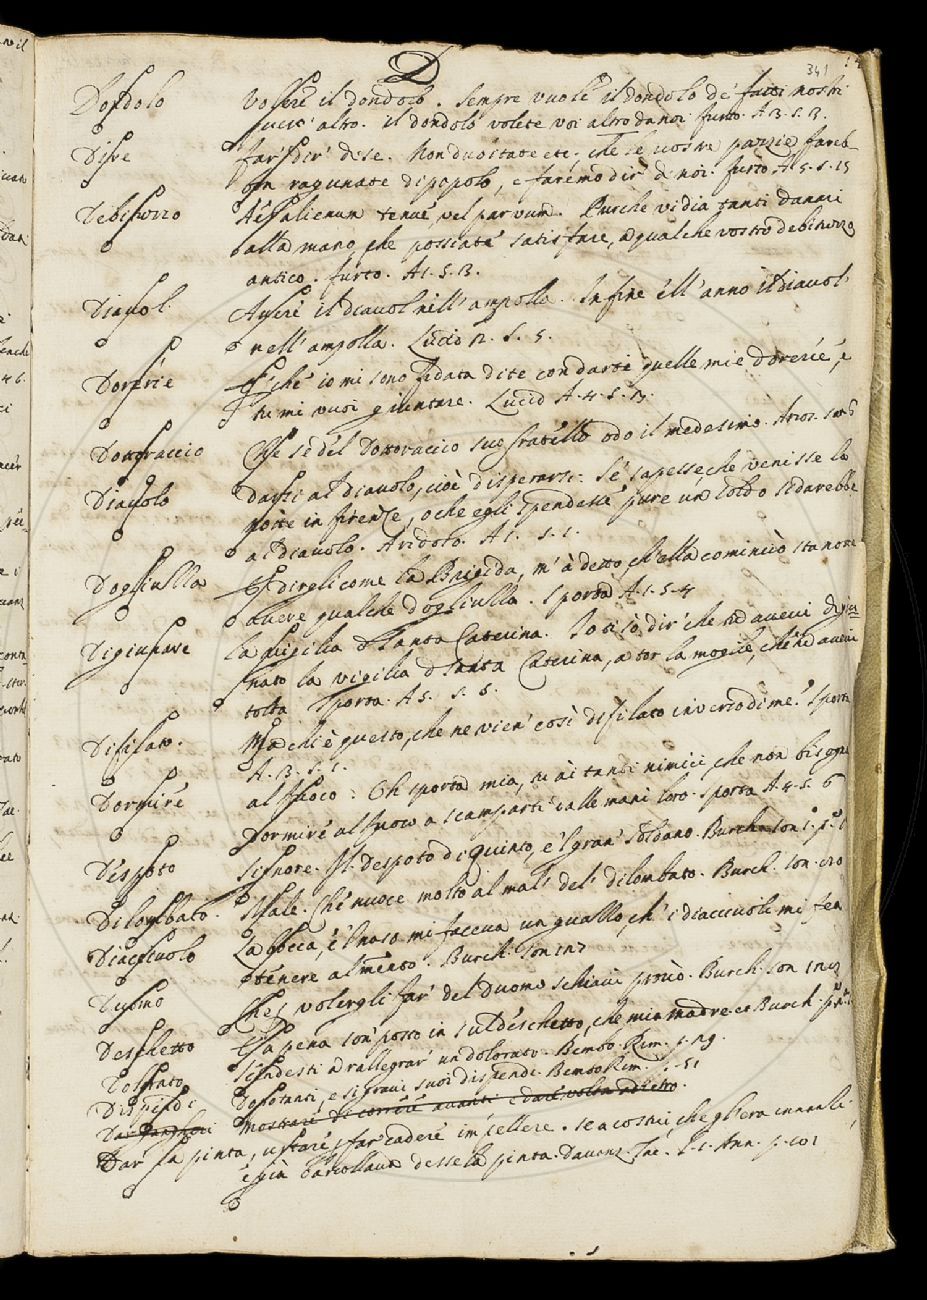 D
341
Dondolo volere il dondolo. Sempre vuole il dondolo de' fatti nostri
altro. il dondolo volete voi altro da noi. furto. A3. S. 13.
Dire far dir di se. Non dubitate etc, che le vostre pazzie fareb-
bon ragunate di popolo, e faremo dir di noi. furto A 5. S. 15
Debituzzo Aes alienum tenue, vel parvum. Purchè vi dia tanti danari
alla mano che possiate satisfare, a qualche vostro debituzzo
antico. furto. A1. S. 13.
Diavol Avere il diavol nell' ampolla. In fine ell' anno il diavol'
nell' ampolla. Lucid 12. S. 5.
Dorerie E' chè io mi sono fidata di te con darti quelle mie dorerie, e
tu mi vuoi giuntare. Lucid A. 4. S. 13.
Dottoraccio Che se del Dottoraccio suo fratello odo il medesimo.
Diavolo darsi al diavolo, cioè disperarsi. Se sapesse, che venisse la
in firenze, o che egli spendessi pure un soldo si darebbe
al diavolo. Aridoso. A1. S. 1.
Dogliulla E dirgli come la Brigida, m' à detto, ch' ella cominciò sta notte
avere qualche dogliulla. Sporta A. 1. S. 4
Digiunare la vigilia di Santa Caterina. Io ti so dir' che tu avevi digiu=
nato la vigilia di Santa Caterina, a tor la moglie, che tu avevi
tolta Sporta. A5. S. 6.
Difilato. Ma chi è questo, che ne vien' così difilato inverso di me? Sporta
A. 3. S. 1.
Dormire al fuoco. Oh sporta mia, tu ài tanti nimici che non bisogna
dormire al fuoco a scamparti dalle mani loro. Sporta A. 4. S. 6
Despoto Signore. Il despoto di Quinto, e 'l gran' soldano. Burch. son 1. p. 1
Dilombato. Male. Che nuoce molto al mal' del' dilombato. Burch. son.
Diacciuolo La bocca, e 'l naso mi faceva un guallo, ch' i diacciuoli mi fea
tenere al mento. Burch. son 127
Duomo Che volergli far' del duomo schiavi provò. Burch. son
Deschetto A pena son' posto in sul deschetto, che mia madre Burch.
Dolorato Scendesti a rallegrar' un dolorato. Bembo Rim. p. 29.
Dispendi Donotanti, e si gravi suoi dispendi. Bembo Rim. p. 51
Dar mostrare di correre avanti e dare volta adietro.
Dar la pinta, urtare, far' cadere impellere. Se a costui che gli era innanzi
e già barcollava desse la pinta. Davanz. Tac. l. 1. Ann. p.